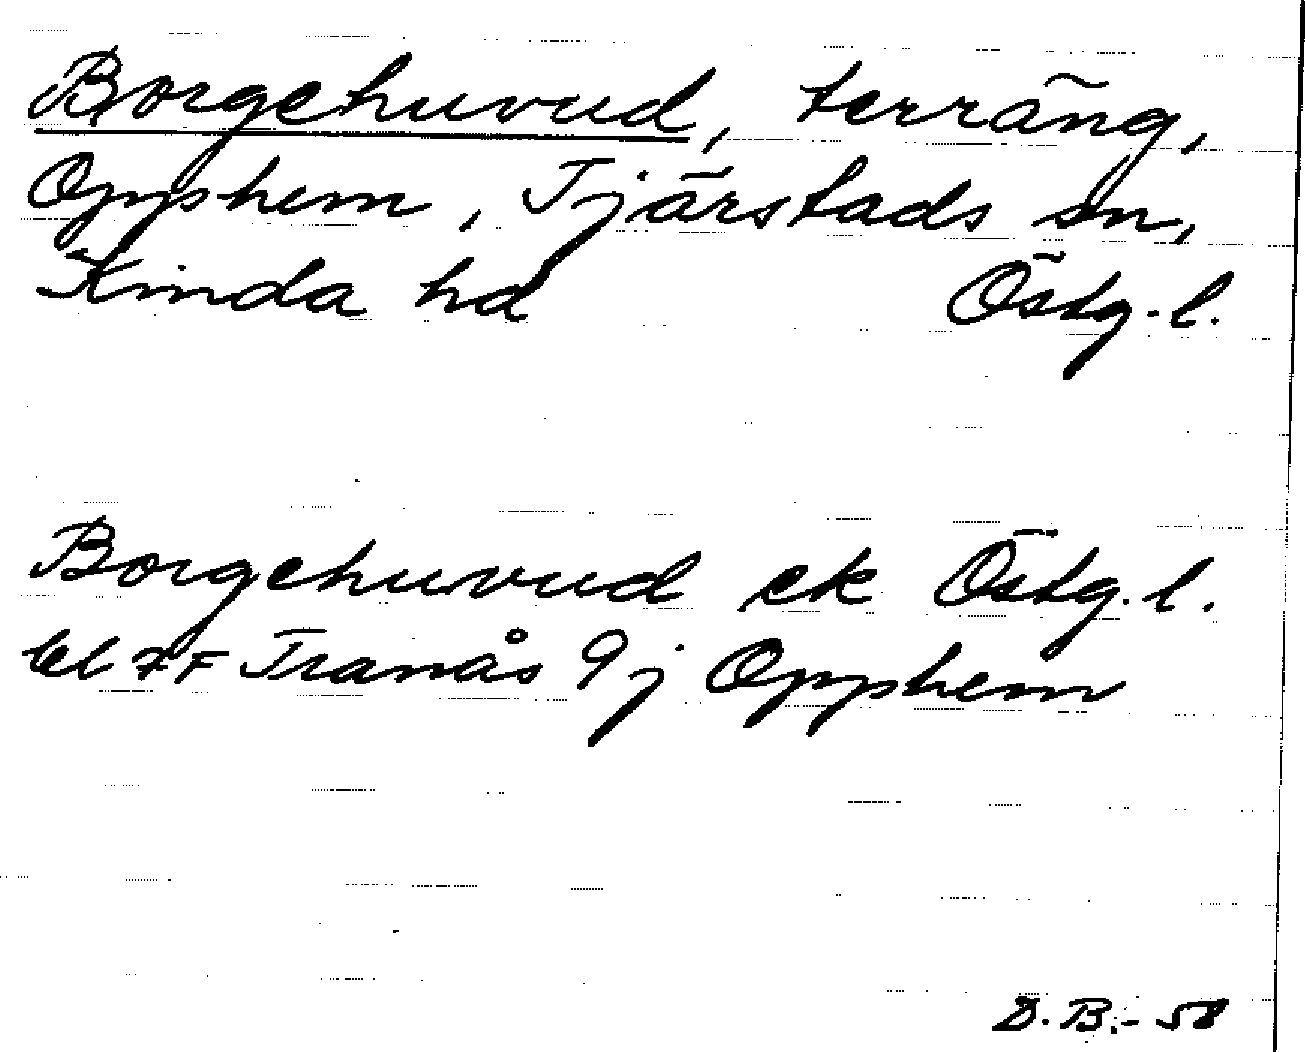 Borgehuvud, terräng,
Opphem, Tjärstads sn,
Kinda hd Östg. l.
Borgehuvud ek Östg. l.
bl 7F Tranås 9j Opphem
D. B. - 58